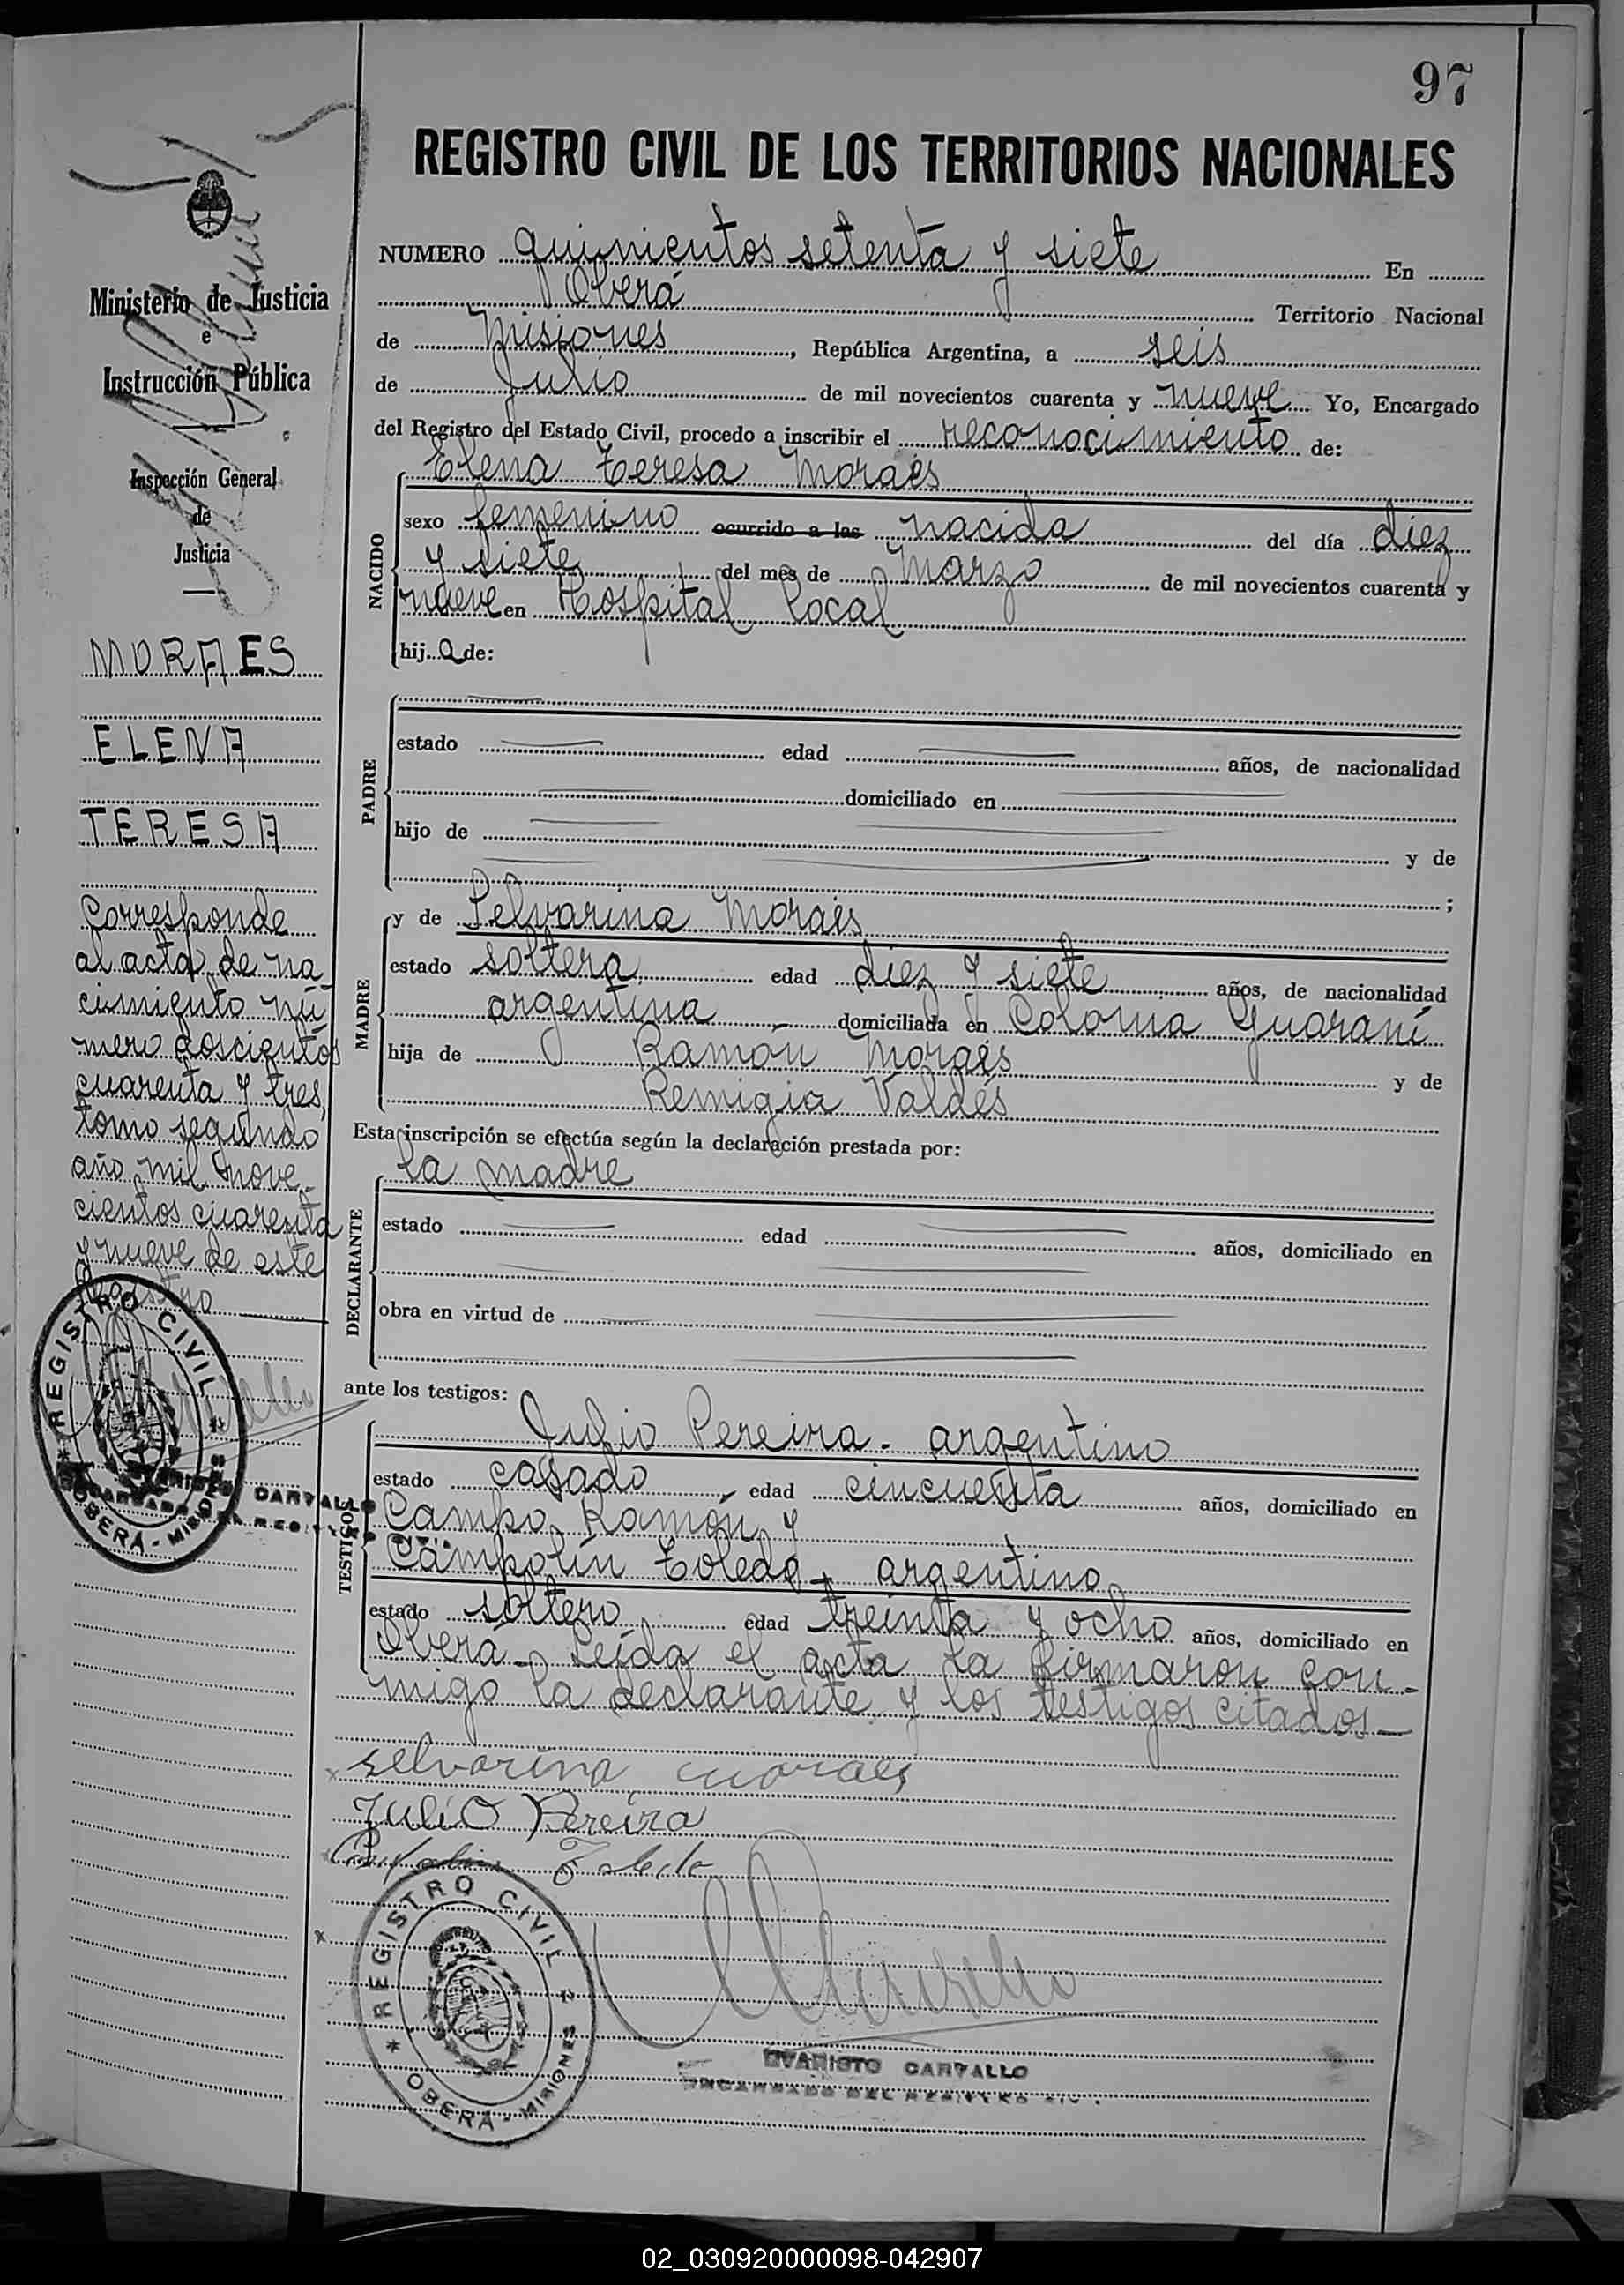 97
REGISTRO CIVIL DE LOS TERRITORIOS NACIONALES
NUMERO quinientos setenta y siete En
Oberá Territorio Nacional
de Misiones, República Argentina, a seis
de Julio de mil novecientos cuarenta y nueve Yo, Encargado
del Registro del Estado Civil, procedo a inscribir el reconocimiento de:
NACIDO
Elena Teresa Moraes
sexo femenino ocurrido a las nacida del día diez
y siete del mes de Marzo de mil novecientos cuarenta y
nueve en Hospital local
hija de:
PADRE
estado edad años, de nacionalidad
domiciliado en
hijo de y de
;
MADRE
y de Selvarina Moraes
estado soltera edad diez y siete años, de nacionalidad
argentina domiciliada en Colonia Guaraní
hija de Ramón Moraes y de
Remigia Valdés
Esta inscripción se efectúa según la declaración prestada por:
DECLARANTE
la madre
estado edad años, domiciliado en
obra en virtud de
ante los testigos:
TESTIGOS
Julio Pereira - argentino
estado casado, edad cincuenta años, domiciliado en
Campo Ramón y
Campolín Toledo - argentino
estado soltero edad treinta y ocho años, domiciliado en
Oberá - Leída el acta la firmaron con-
migo la declarante y los testigos citados—
x selvarina moraes
Julio Pereira
Campolin Toledo
x
REGISTRO CIVIL
OBERÁ - MISIONES
EVARISTO CARVALLO
ENCARGADO DEL REGISTRO CIV.
Ministerio de Justicia
e
Instrucción Pública
Inspección General
de
Justicia
MORAES
ELENA
TERESA
Corresponde
al acta de na
cimiento nú
mero doscientos
cuarenta y tres,
tomo segundo
año mil nove-
cientos cuarenta
y nueve de este
Registro
REGISTRO CIVIL
OBERÁ - MISIONES
EVARISTO CARVALLO
ENCARGADO DEL REGISTRO CIV.
02_030920000098-042907